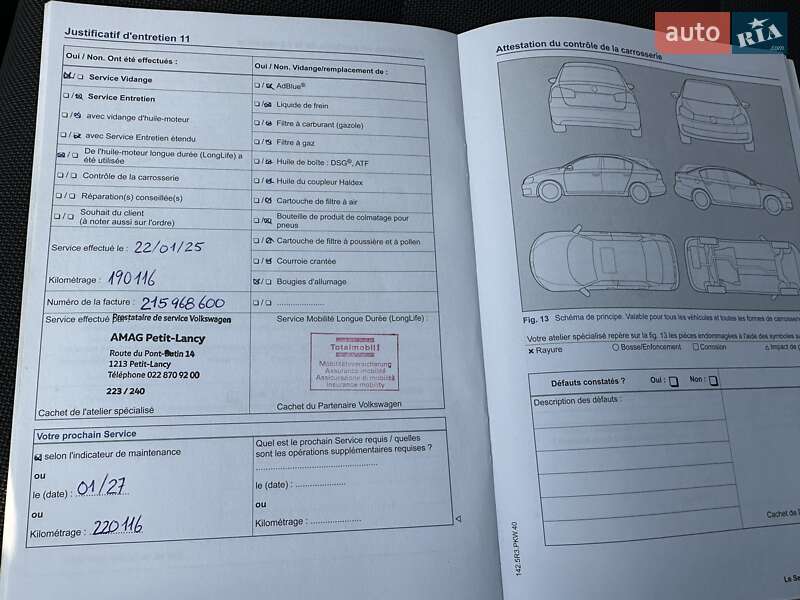 Justificatif d'entretien 11
Oui / Non. Ont été effectués :
☑/☐ Service Vidange
☐/☑ Service Entretien
☐/☑ avec vidange d'huile-moteur
☐/☑ avec Service Entretien étendu
☑/☐ De l'huile-moteur longue durée (LongLife) a
été utilisée
☐/☐ Contrôle de la carrosserie
☐/☐ Réparation(s) conseillée(s)
☐/☐ Souhait du client
(à noter aussi sur l'ordre)
Service effectué le : 22/01/25
Kilométrage : 190116
Numéro de la facture : 215968600
Oui / Non. Vidange/remplacement de :
☐/☑ AdBlue®
☐/☑ Liquide de frein
☐/☑ Filtre à carburant (gazole)
☐/☑ Filtre à gaz
☐/☑ Huile de boîte : DSG®, ATF
☐/☑ Huile du coupleur Haldex
☐/☑ Cartouche de filtre à air
☐/☑ Bouteille de produit de colmatage pour
pneus
☐/☑ Cartouche de filtre à poussière et à pollen
☐/☑ Courroie crantée
☑/☐ Bougies d'allumage
☐/☐ ........................
Service effectué par
Prestataire de service Volkswagen
AMAG Petit-Lancy
Route du Pont-Butin 14
1213 Petit-Lancy
Téléphone 022 870 92 00
223 / 240
Cachet de l'atelier spécialisé
Service Mobilité Longue Durée (LongLife) :
Totalmobil!
Mobilitätsversicherung
Assurance mobilité
Assicurazione di mobilità
Insurance mobility
Cachet du Partenaire Volkswagen
Votre prochain Service
☑ selon l'indicateur de maintenance
ou
le (date) : 01/27
ou
Kilométrage : 220116
Quel est le prochain Service requis / quelles
sont les opérations supplémentaires requises ?
........................
le (date) : ....................
ou
Kilométrage : ....................
Attestation du contrôle de la carrosserie
Fig. 13 Schéma de principe. Valable pour tous les véhicules et toutes les formes de carrosserie
Votre atelier spécialisé repère sur la fig. 13 les pièces endommagées à l'aide des symboles
× Rayure
○ Bosse/Enfoncement
☐ Corrosion
Impact de
Défauts constatés ? Oui : ☐ Non : ☐
Description des défauts :
Cachet de
142.5R3.PKW.40
Le Se
auto RIA
.com